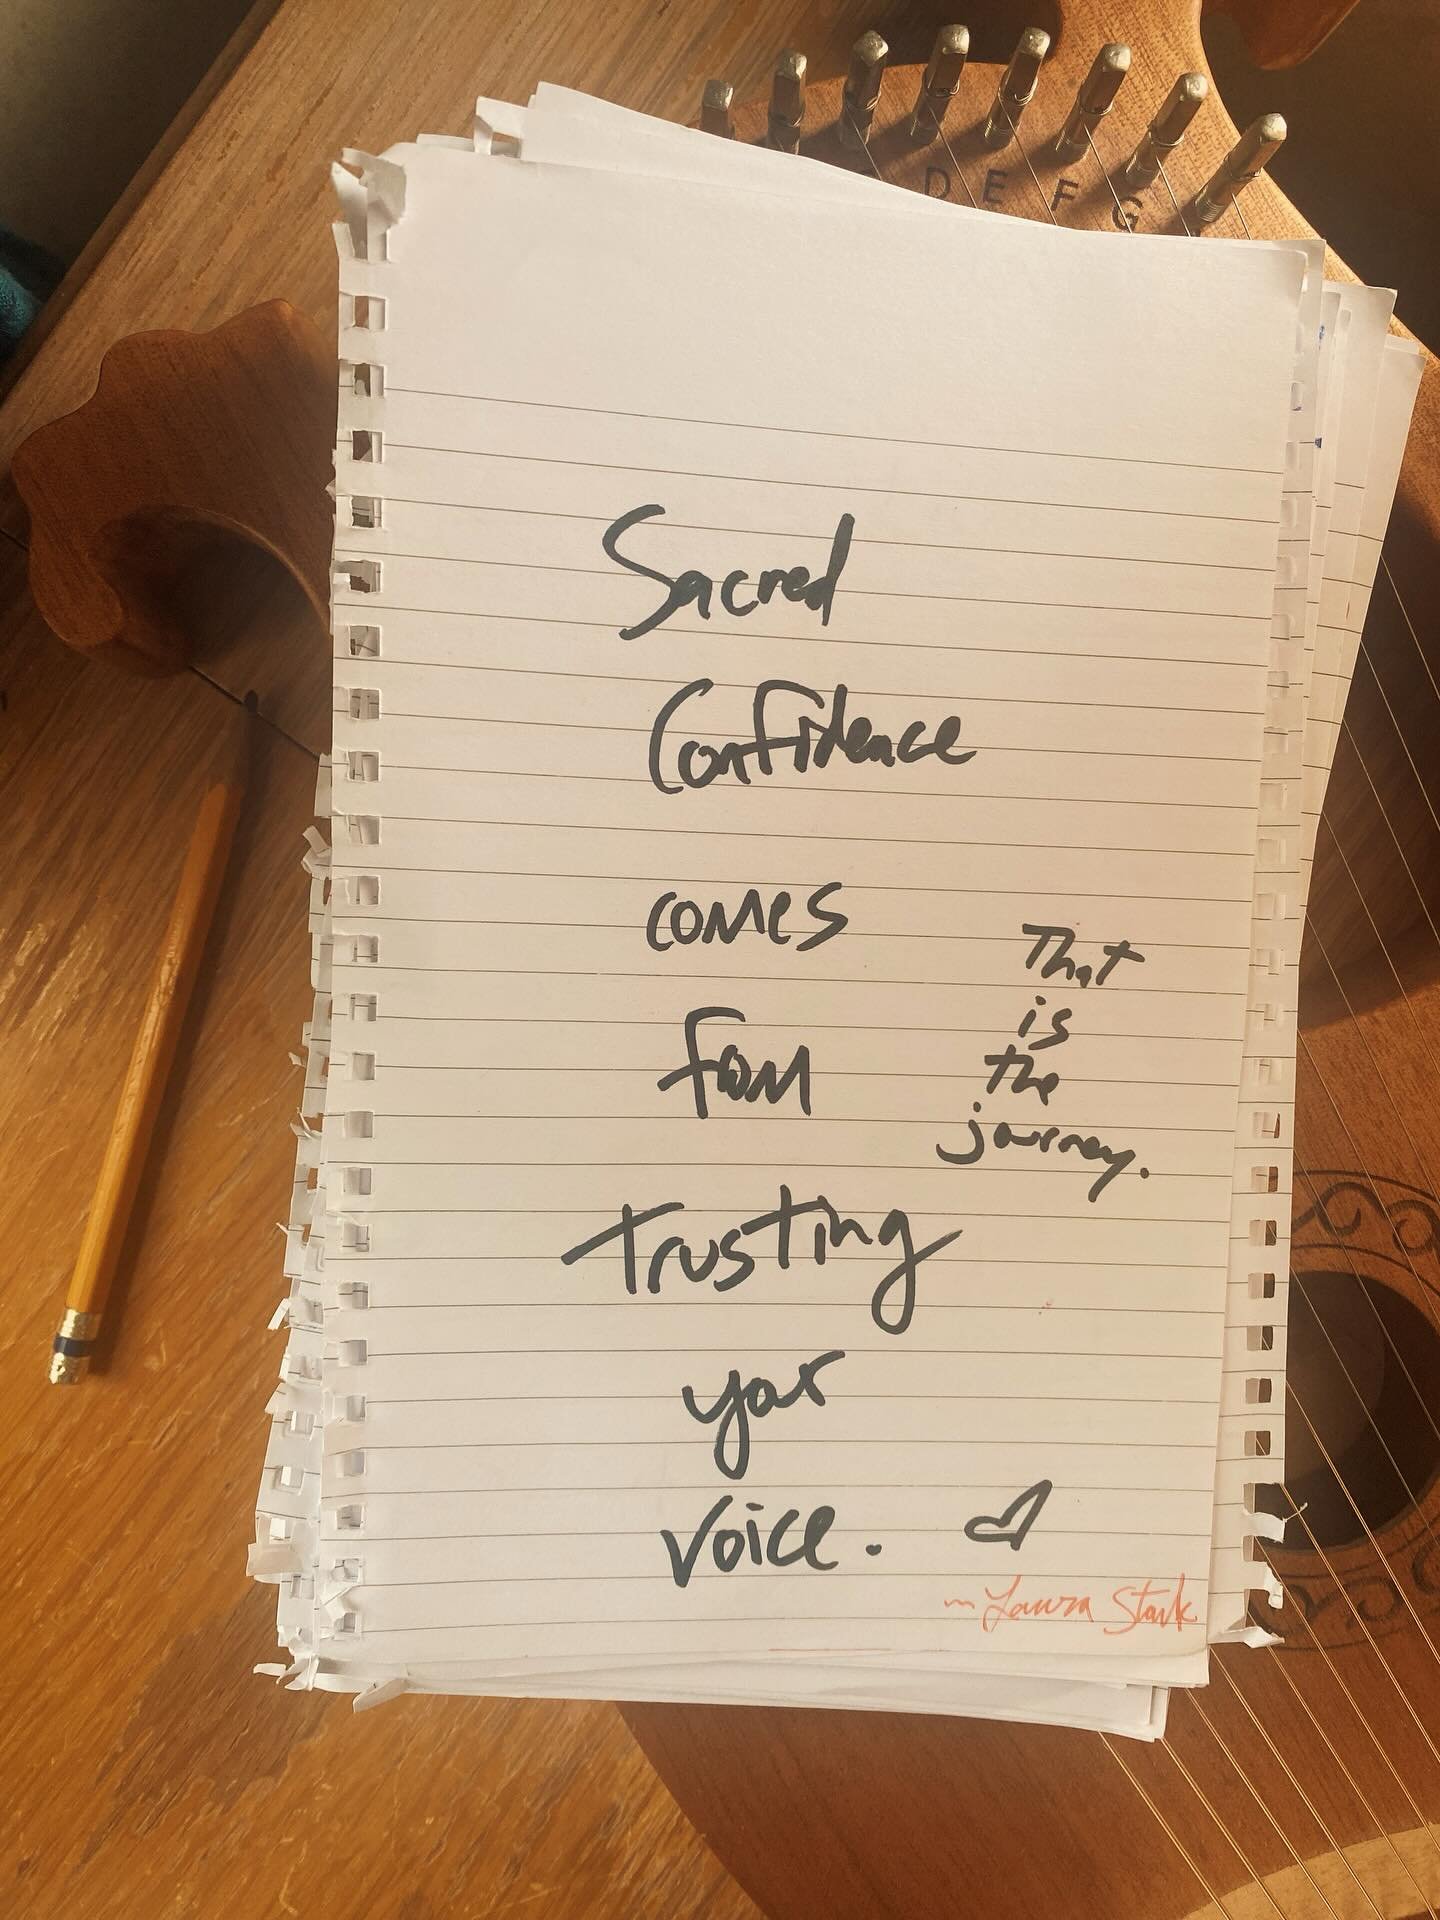 D E F G
Sacred
Confidence
comes
from
trusting
your
voice.
That
is
the
journey.
~ Laura Stark